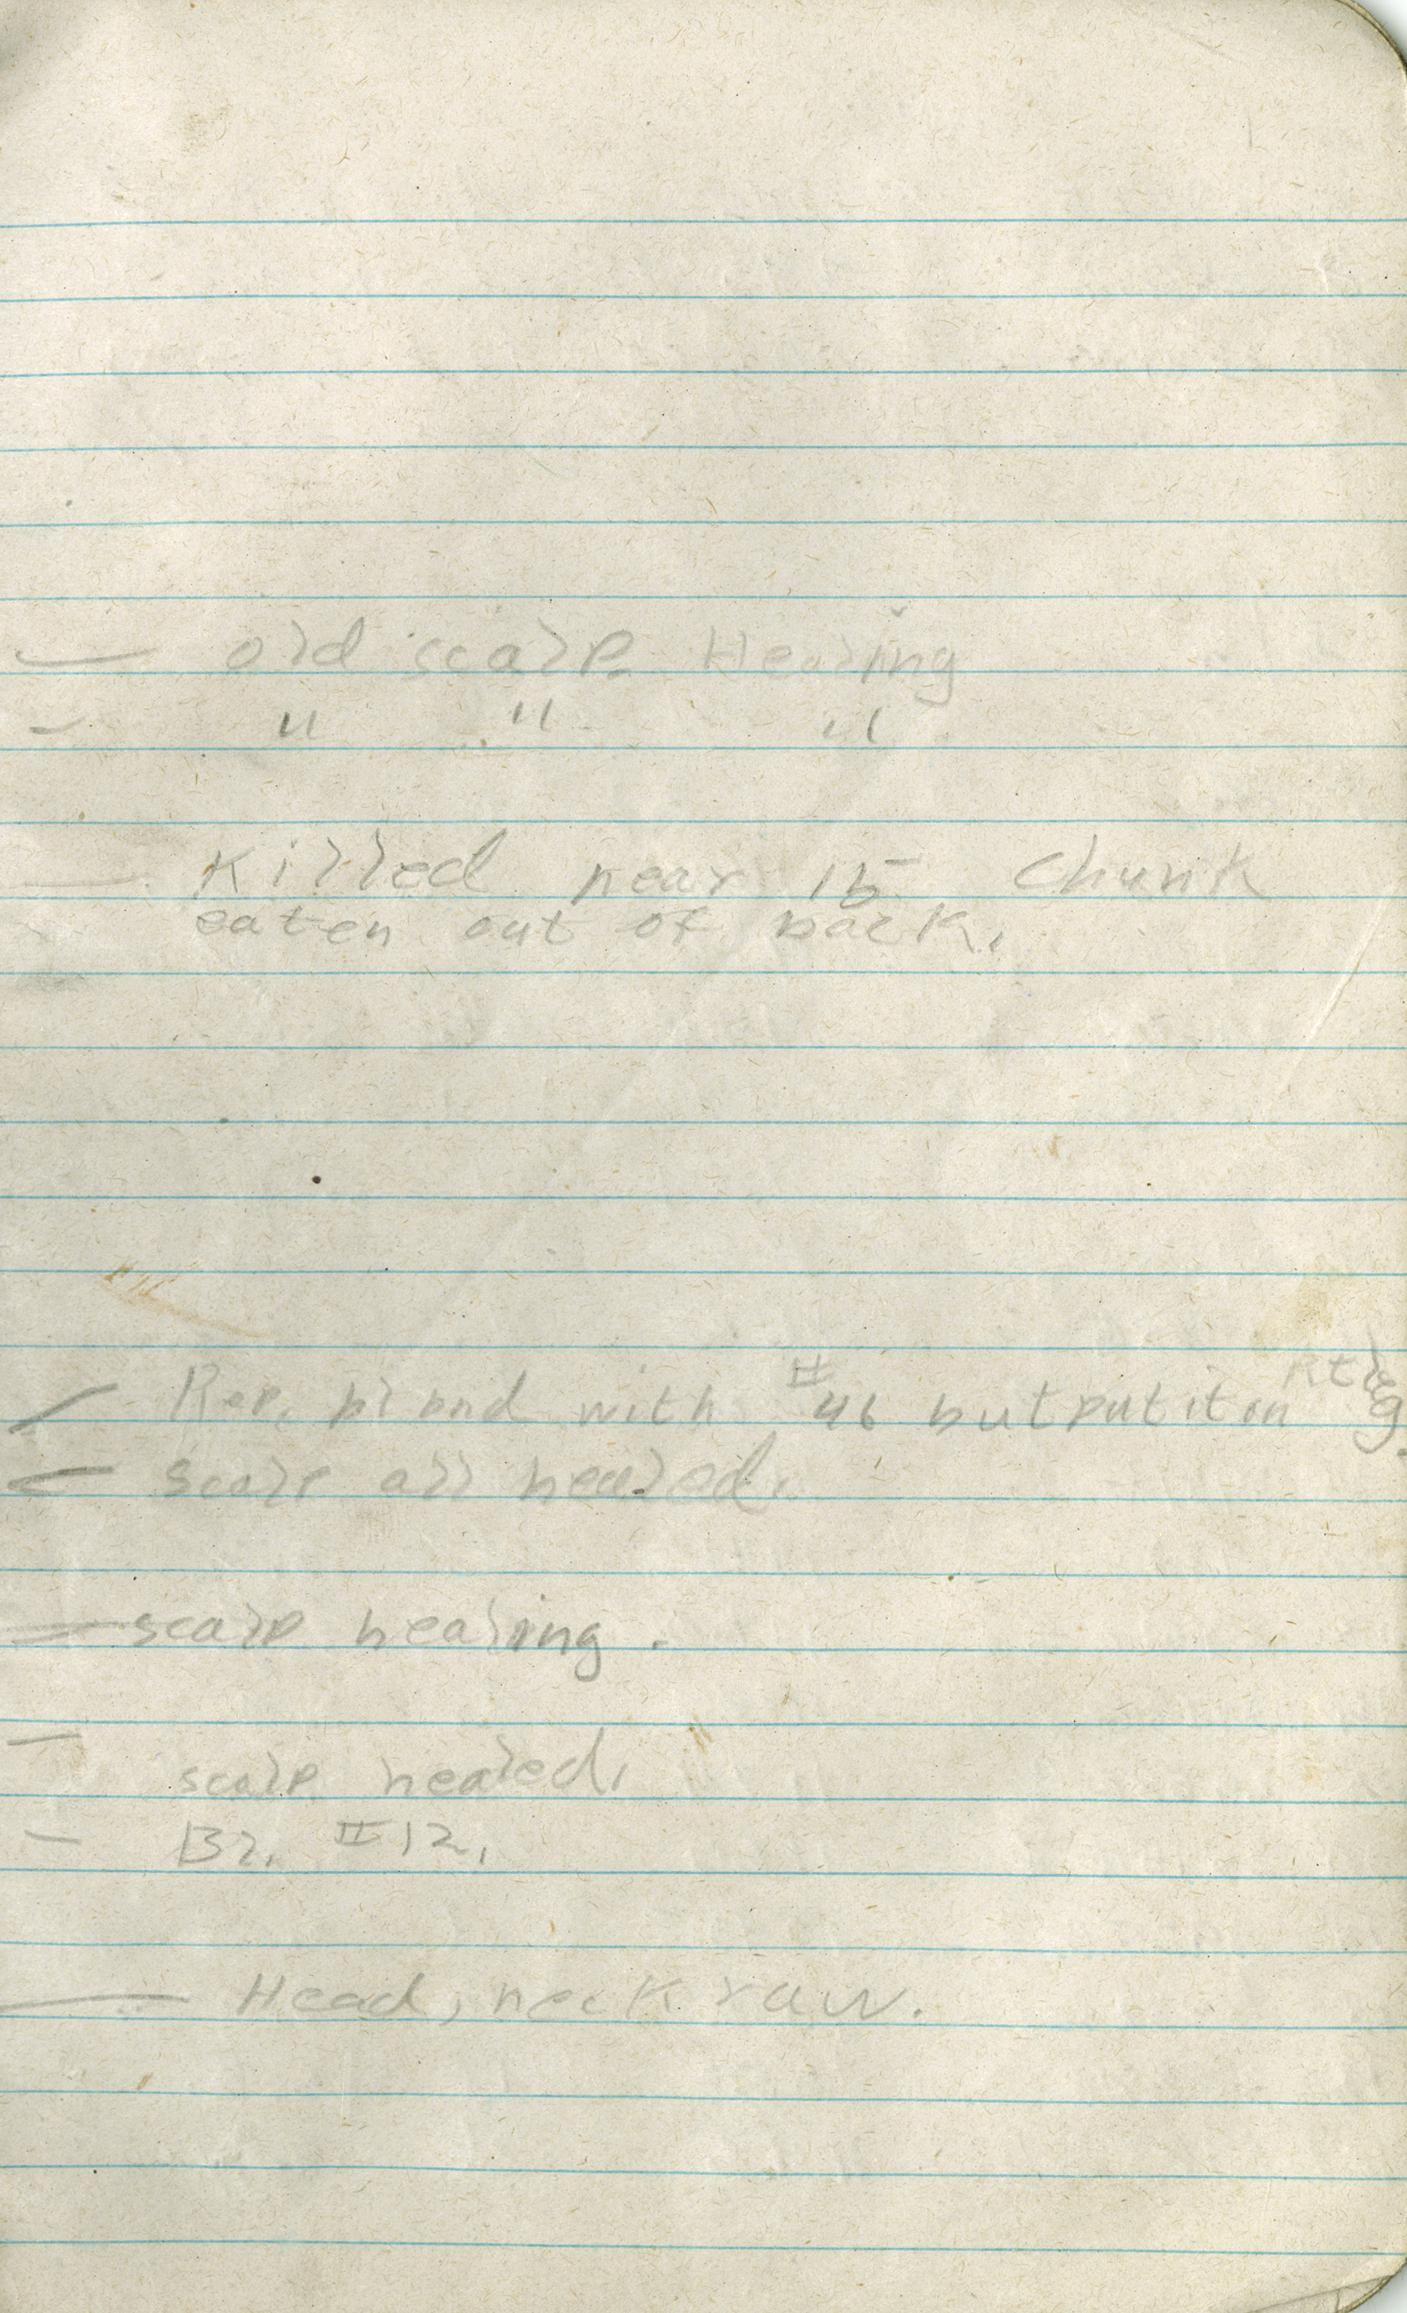 — old scalp Healing
— " " "
— Killed near 15 Chunk
eaten out of back.
— Rep. pl bnd with #46 but put it on Rt leg.
— scalp all healed.
— scalp healing.
—
scalp healed.
— #12.
— Head, neck raw.